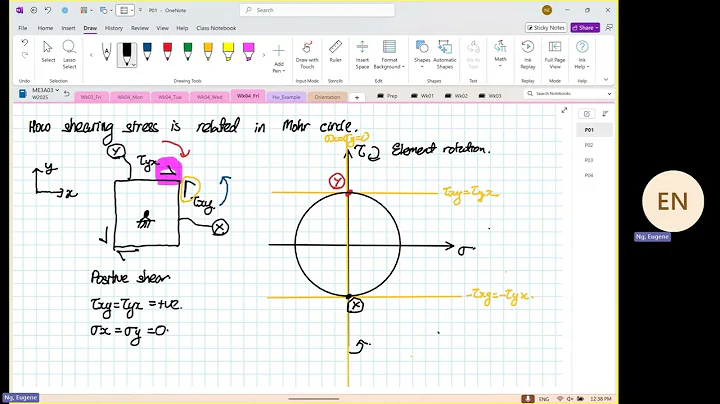 P01 - OneNote
Search
NE
File
Home
Insert
Draw
View
History
Review
Help
Class Notebook
Sticky Notes
Share
Undo
Select
Lasso Select
Add Pen
Draw with Touch
Ruler
Insert Space
Format Background
Shapes
Arrange
Ink to Text
Ink to Shape
Math
Ink Replay
Full Page View
Ink Help
Undo
Tools
Drawing Tools
Input Mode
Stencils
Insert
Edit
Convert
Replay
View
Help
ME3A03 W2025
Wk03_Fri
Wk04_Mon
Wk04_Tue
Wk04_Wed
Wk04_Fri
Hw_Example
Orientation
+
Prep
Wk01
Wk02
Wk03
Search Notebooks
P01
P02
P03
P04
How shearing stress is related in Mohr circle.
σx=σy=0
Y
τyx
τ
Element rotation.
y
x
τxy
X
Y
τxy=τyx
σ
Positive shear
τxy=τyx=+ve.
σx=σy=0.
-τxy=-τyx.
X
EN
Ng, Eugene
Ng, Eugene
ENG
12:38 PM